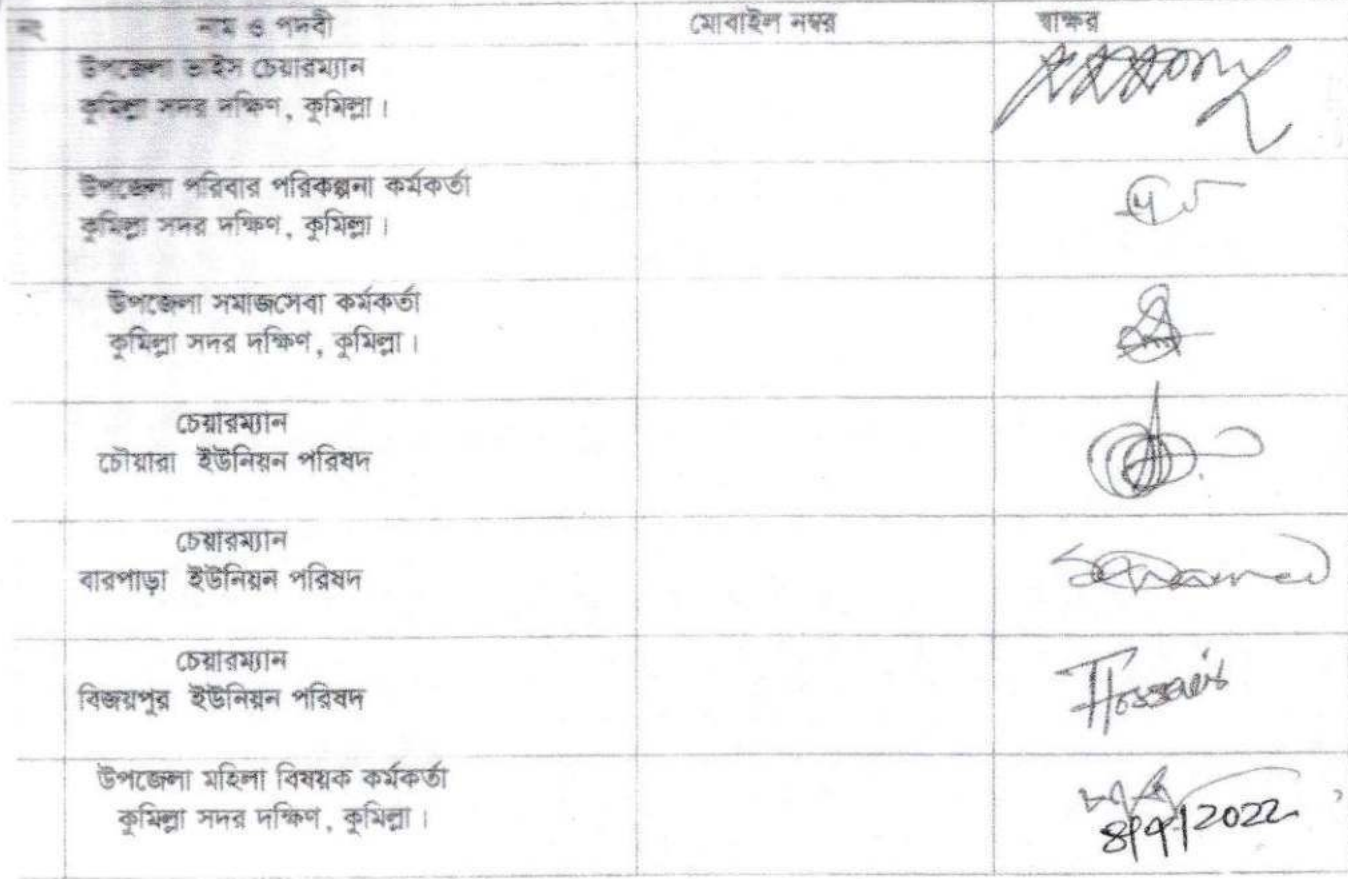 নং নাম ও পদবী মোবাইল নম্বর স্বাক্ষর
উপজেলা ভাইস চেয়ারম্যান
কুমিল্লা সদর দক্ষিণ, কুমিল্লা।
উপজেলা পরিবার পরিকল্পনা কর্মকর্তা
কুমিল্লা সদর দক্ষিণ, কুমিল্লা।
উপজেলা সমাজসেবা কর্মকর্তা
কুমিল্লা সদর দক্ষিণ, কুমিল্লা।
চেয়ারম্যান
চৌয়ারা ইউনিয়ন পরিষদ
চেয়ারম্যান
বারপাড়া ইউনিয়ন পরিষদ
চেয়ারম্যান
বিজয়পুর ইউনিয়ন পরিষদ
Hossain
উপজেলা মহিলা বিষয়ক কর্মকর্তা
কুমিল্লা সদর দক্ষিণ, কুমিল্লা।